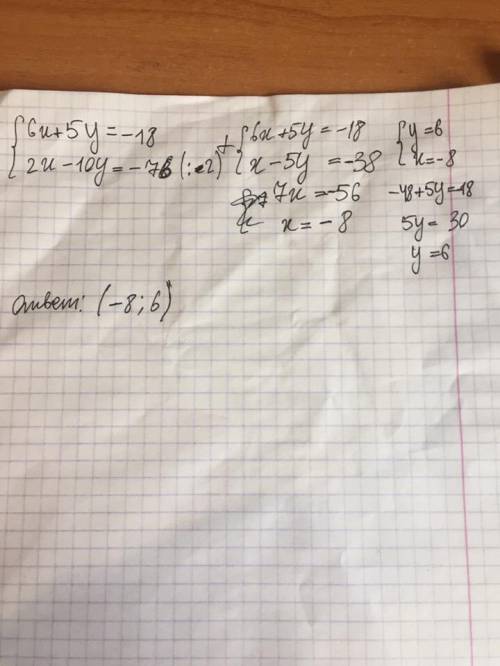 {6x+5y=-18
{2x-10y=-76 (:2)
+ {6x+5y=-18
{x-5y=-38
7x=-56
x=-8
{y=6
{x=-8
-48+5y=-18
5y=30
y=6
Ответ: (-8;6)